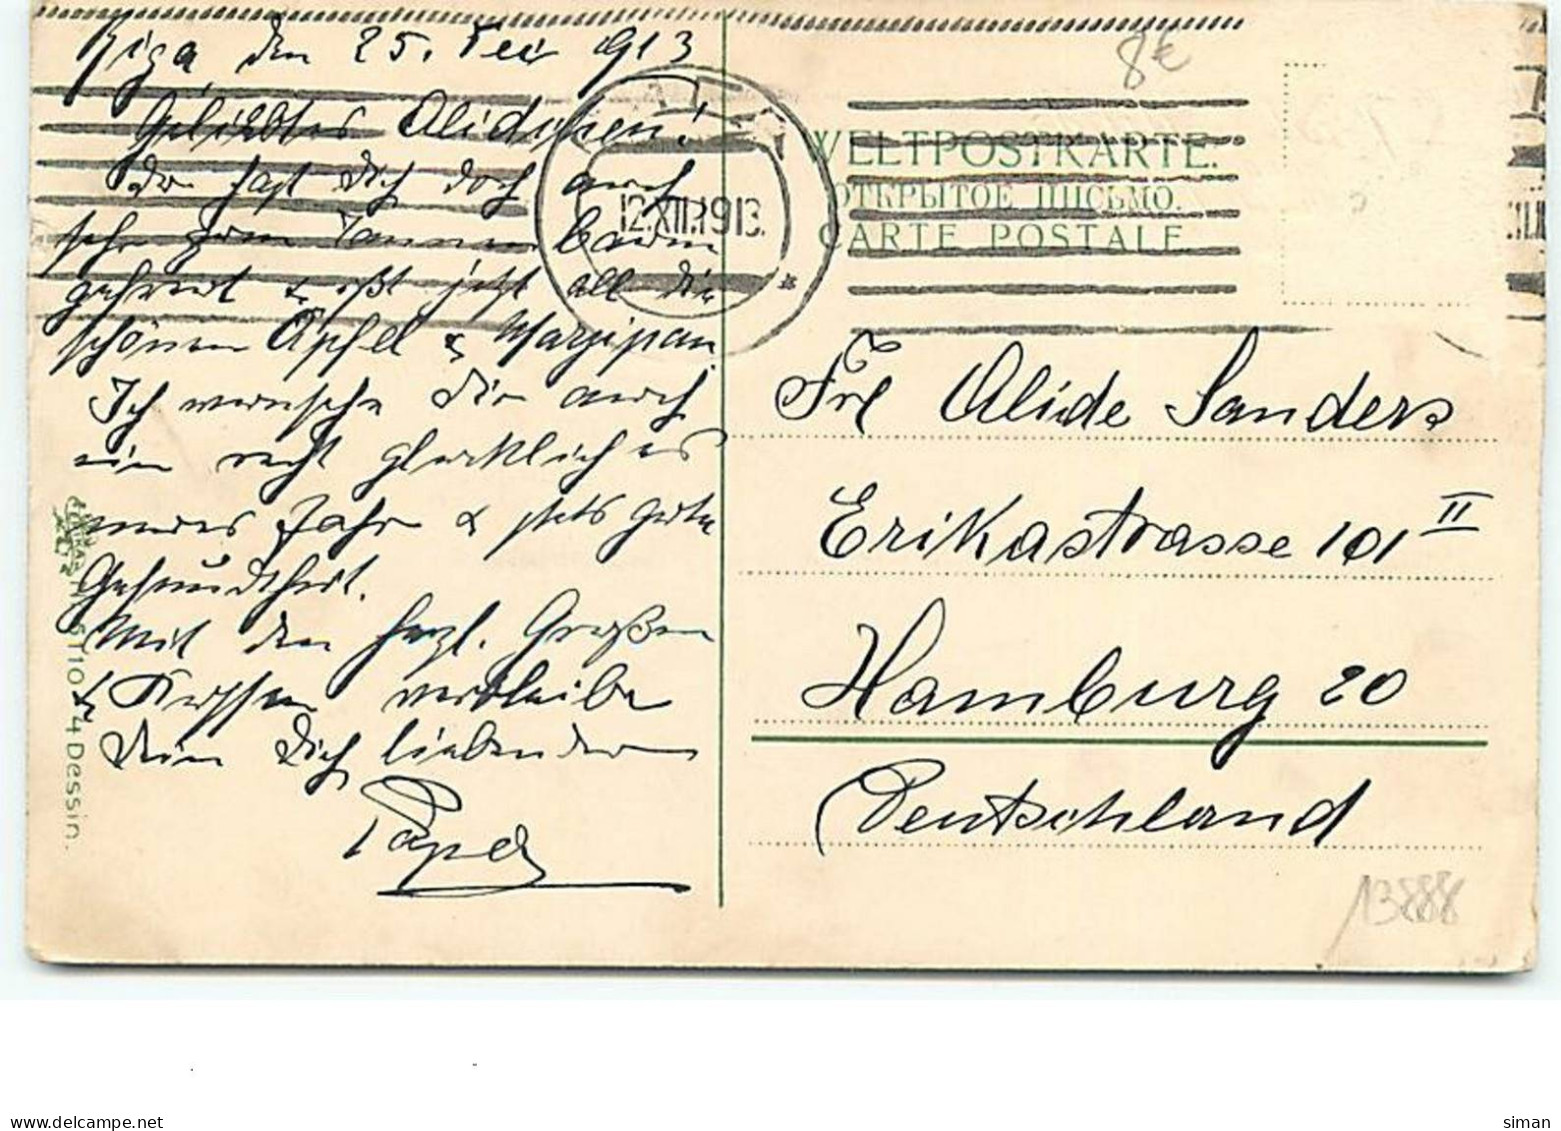 Riga den 25. Dez 1913
8€
Geliebtes Alidchen!
Du hast Dich doch auch
sehr zum Tannenbaum
gefreut & ißt jetzt all die
schönen Äpfel & Marzipan.
Ich wünsche Dir auch
ein recht glückliches
neues Jahr & stets gute
Gesundheit.
Mit den herzl. Grüßen
& Küssen verbleibe
Dein Dich liebender
Papa
12.XII.1913.
WELTPOSTKARTE.
ОТКРЫТОЕ ПИСЬМО.
CARTE POSTALE
Frl Alide Sanders
Erikastrasse 101 II
Hamburg 20
Deutschland
44 Dessin.
13888
www.delcampe.net
siman